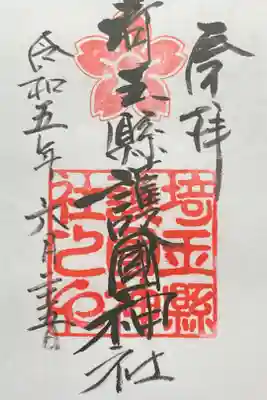 奉拝
埼玉縣護國神社
令和五年六月
埼玉縣
護國神
社之印